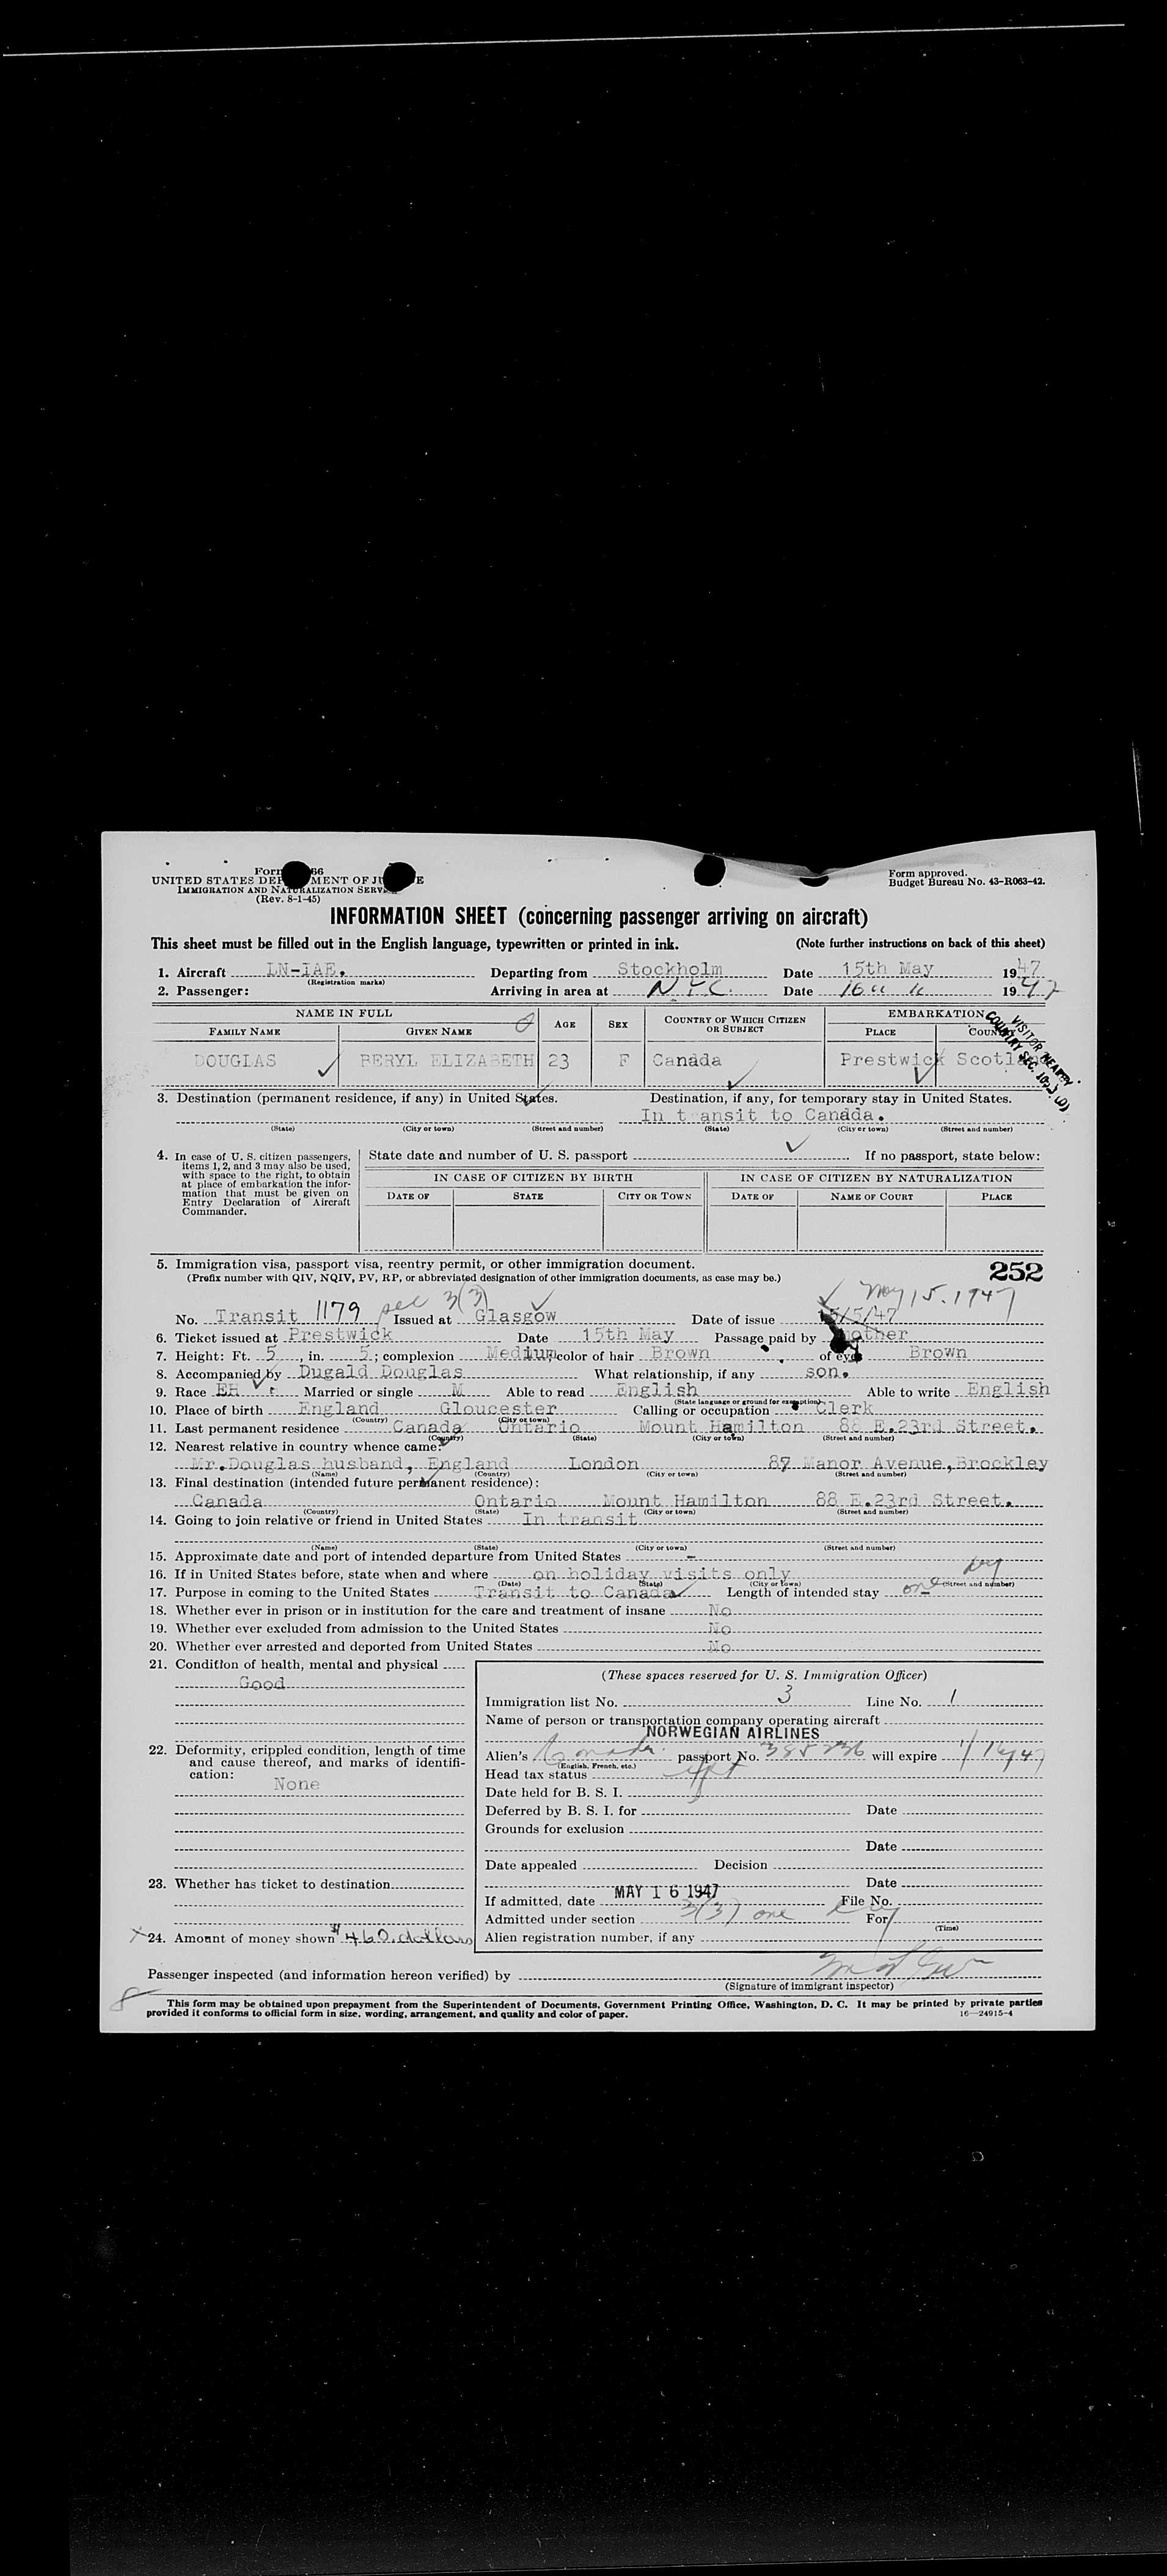 Form 66
UNITED STATES DEPARTMENT OF JUSTICE
IMMIGRATION AND NATURALIZATION SERVICE
(Rev. 8-1-45)
Form approved.
Budget Bureau No. 43-R063-42.
INFORMATION SHEET (concerning passenger arriving on aircraft)
This sheet must be filled out in the English language, typewritten or printed in ink. (Note further instructions on back of this sheet)
1. Aircraft LN-IAE. Departing from Stockholm Date 15th May 1947
(Registration marks)
2. Passenger: Arriving in area at NYC. Date 16 " " 1947
NAME IN FULL AGE SEX COUNTRY OF WHICH CITIZEN OR SUBJECT EMBARKATION
FAMILY NAME GIVEN NAME PLACE COUNTRY
DOUGLAS BERYL ELIZABETH 23 F Canada Prestwick Scotland
3. Destination (permanent residence, if any) in United States. Destination, if any, for temporary stay in United States.
In t ansit to Canada.
(State) (City or town) (Street and number) (State) (City or town) (Street and number)
4. In case of U. S. citizen passengers, items 1, 2, and 3 may also be used, with space to the right, to obtain at place of embarkation the information that must be given on Entry Declaration of Aircraft Commander.
State date and number of U. S. passport If no passport, state below:
IN CASE OF CITIZEN BY BIRTH IN CASE OF CITIZEN BY NATURALIZATION
DATE OF STATE CITY OR TOWN DATE OF NAME OF COURT PLACE
5. Immigration visa, passport visa, reentry permit, or other immigration document. 252
(Prefix number with QIV, NQIV, PV, RP, or abbreviated designation of other immigration documents, as case may be.)
May 15. 1947
No. Transit 1179 sec 3(3) Issued at Glasgow Date of issue 15/5/47
6. Ticket issued at Prestwick Date 15th May Passage paid by
7. Height: Ft. 5, in. 5; complexion Medium color of hair Brown of eyes Brown
8. Accompanied by Dugald Douglas What relationship, if any son.
9. Race EH Married or single M Able to read English Able to write English
(State language or ground for exemption)
10. Place of birth England Gloucester Calling or occupation Clerk
(Country) (City or town)
11. Last permanent residence Canada Ontario Mount Hamilton 88 E.23rd Street.
(Country) (State) (City or town) (Street and number)
12. Nearest relative in country whence came:
Mr.Douglas husband, England London 87 Manor Avenue, Brockley
(Name) (Country) (City or town) (Street and number)
13. Final destination (intended future permanent residence):
Canada Ontario Mount Hamilton 88 E.23rd Street.
(Country) (State) (City or town) (Street and number)
14. Going to join relative or friend in United States In transit
(Name) (State) (City or town) (Street and number)
15. Approximate date and port of intended departure from United States -
16. If in United States before, state when and where on holiday visits only
(Date) (State) (City or town) (Street and number)
17. Purpose in coming to the United States Transit to Canada Length of intended stay one day
18. Whether ever in prison or in institution for the care and treatment of insane No
19. Whether ever excluded from admission to the United States No
20. Whether ever arrested and deported from United States No
21. Condition of health, mental and physical
Good
22. Deformity, crippled condition, length of time and cause thereof, and marks of identification:
None
23. Whether has ticket to destination
24. Amount of money shown $460. dollars
(These spaces reserved for U. S. Immigration Officer)
Immigration list No. 3 Line No. 1
Name of person or transportation company operating aircraft
NORWEGIAN AIRLINES
Alien's Canada passport No. 385236 will expire 1/16/47
(English, French, etc.)
Head tax status
Date held for B. S. I.
Deferred by B. S. I. for Date
Grounds for exclusion
Date
Date appealed Decision
Date
If admitted, date MAY 16 1947 File No.
Admitted under section 3(3) one day For
(Time)
Alien registration number, if any
Passenger inspected (and information hereon verified) by
(Signature of immigrant inspector)
This form may be obtained upon prepayment from the Superintendent of Documents, Government Printing Office, Washington, D. C. It may be printed by private parties
provided it conforms to official form in size, wording, arrangement, and quality and color of paper. 16—24915-4